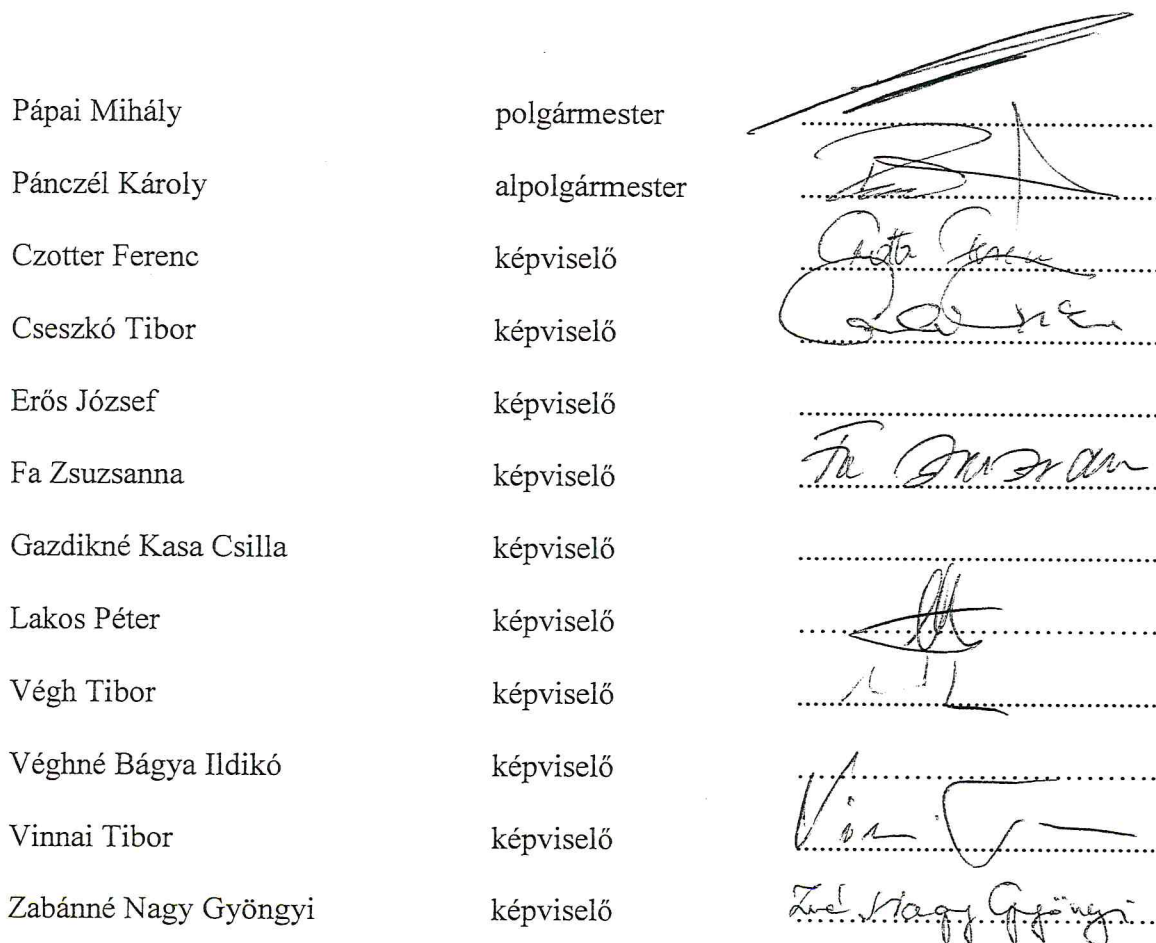 Pápai Mihály polgármester ....................
Pánczél Károly alpolgármester ....................
Czotter Ferenc képviselő ....................
Cseszkó Tibor képviselő ....................
Erős József képviselő ....................
Fa Zsuzsanna képviselő ....................
Gazdikné Kasa Csilla képviselő ....................
Lakos Péter képviselő ....................
Végh Tibor képviselő ....................
Véghné Bágya Ildikó képviselő ....................
Vinnai Tibor képviselő ....................
Zabánné Nagy Gyöngyi képviselő Zné Nagy Gyöngyi